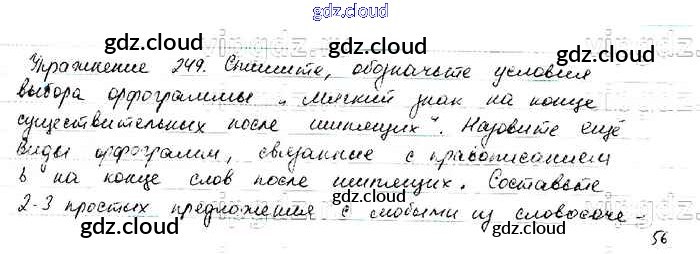 gdz.cloud
gdz.cloud gdz.cloud
Упражнение 249. Спишите, обозначьте условия
gdz.cloud gdz.cloud
выбора орфограммы „Мягкий знак на конце
существительных после шипящих". Назовите ещё
виды орфограмм, связанные с правописанием
gdz.cloud gdz.cloud
ь на конце слов после шипящих. Составьте
2-3 простых предложения с любыми из словосоче-
gdz.cloud gdz.cloud
56